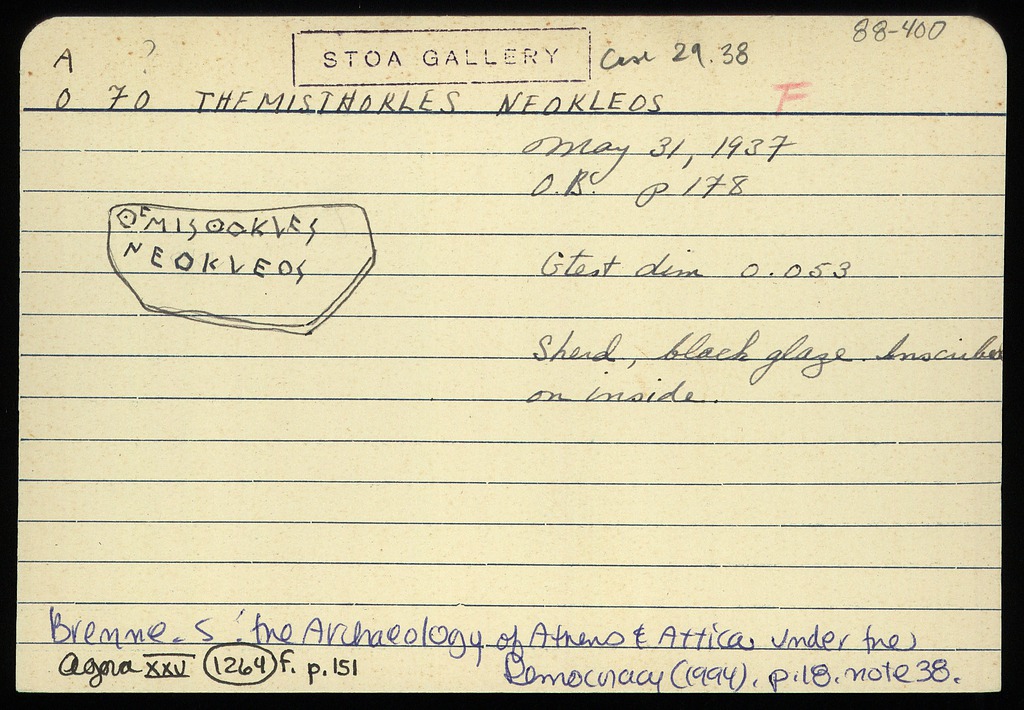 88-400
A ?
STOA GALLERY Case 29.38
O 70 THEMISTHOKLES NEOKLEOS F
May 31, 1937
O.B. p 178
ΘEMISΘOKLES
NEOKLEOS
Gtest dim 0.053
Sherd, black glaze. Inscribed
on inside.
Brenne. S. the Archaeology of Athens & Attica under the
Democracy (1994). p.18. note 38.
Agora XXV 1264 f. p. 151